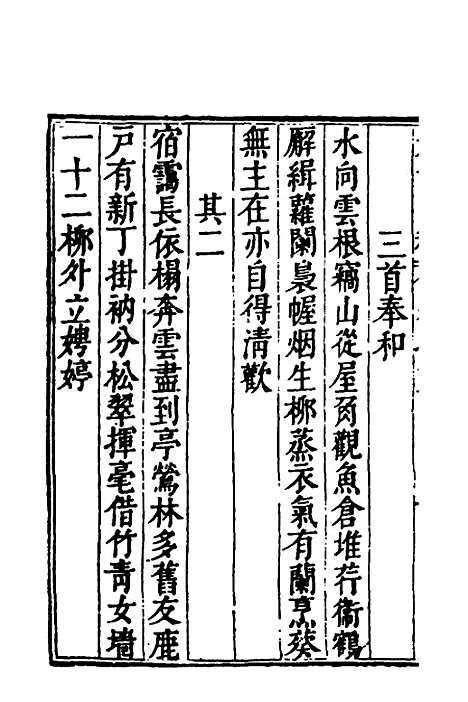 三首奉和
水向雲根竊山從屋角觀魚倉堆荇衛鶴
廨緝蘿闌裊幄烟生柳蒸衣氣有蘭烹葵
無主在亦自得清歡
其二
宿靄長依榻奔雲盡到亭鶯林多舊友鹿
戸有新丁掛衲分松翠揮毫借竹青女墻
一十二柳外立娉婷